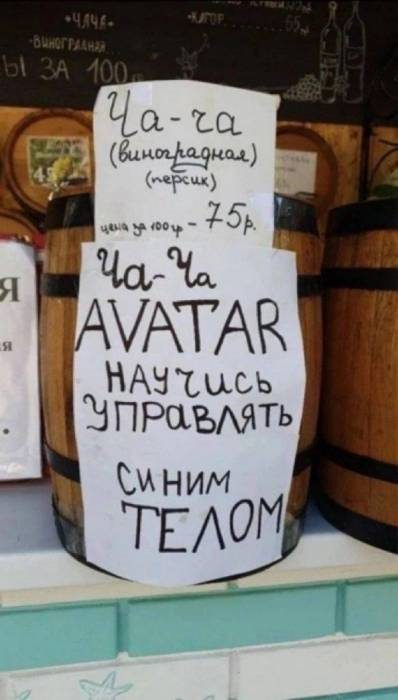 ·ЧАЧА·
ВИНОГРАДНАЯ
·КАГОР
65
Ы ЗА 100
Ча-ча
(виноградная)
(персик)
цена за 100 гр - 75р.
Ча-Ча
AVATAR
НАУЧИСЬ
УПРАВЛЯТЬ
СИНИМ
ТЕЛОМ
Я
я